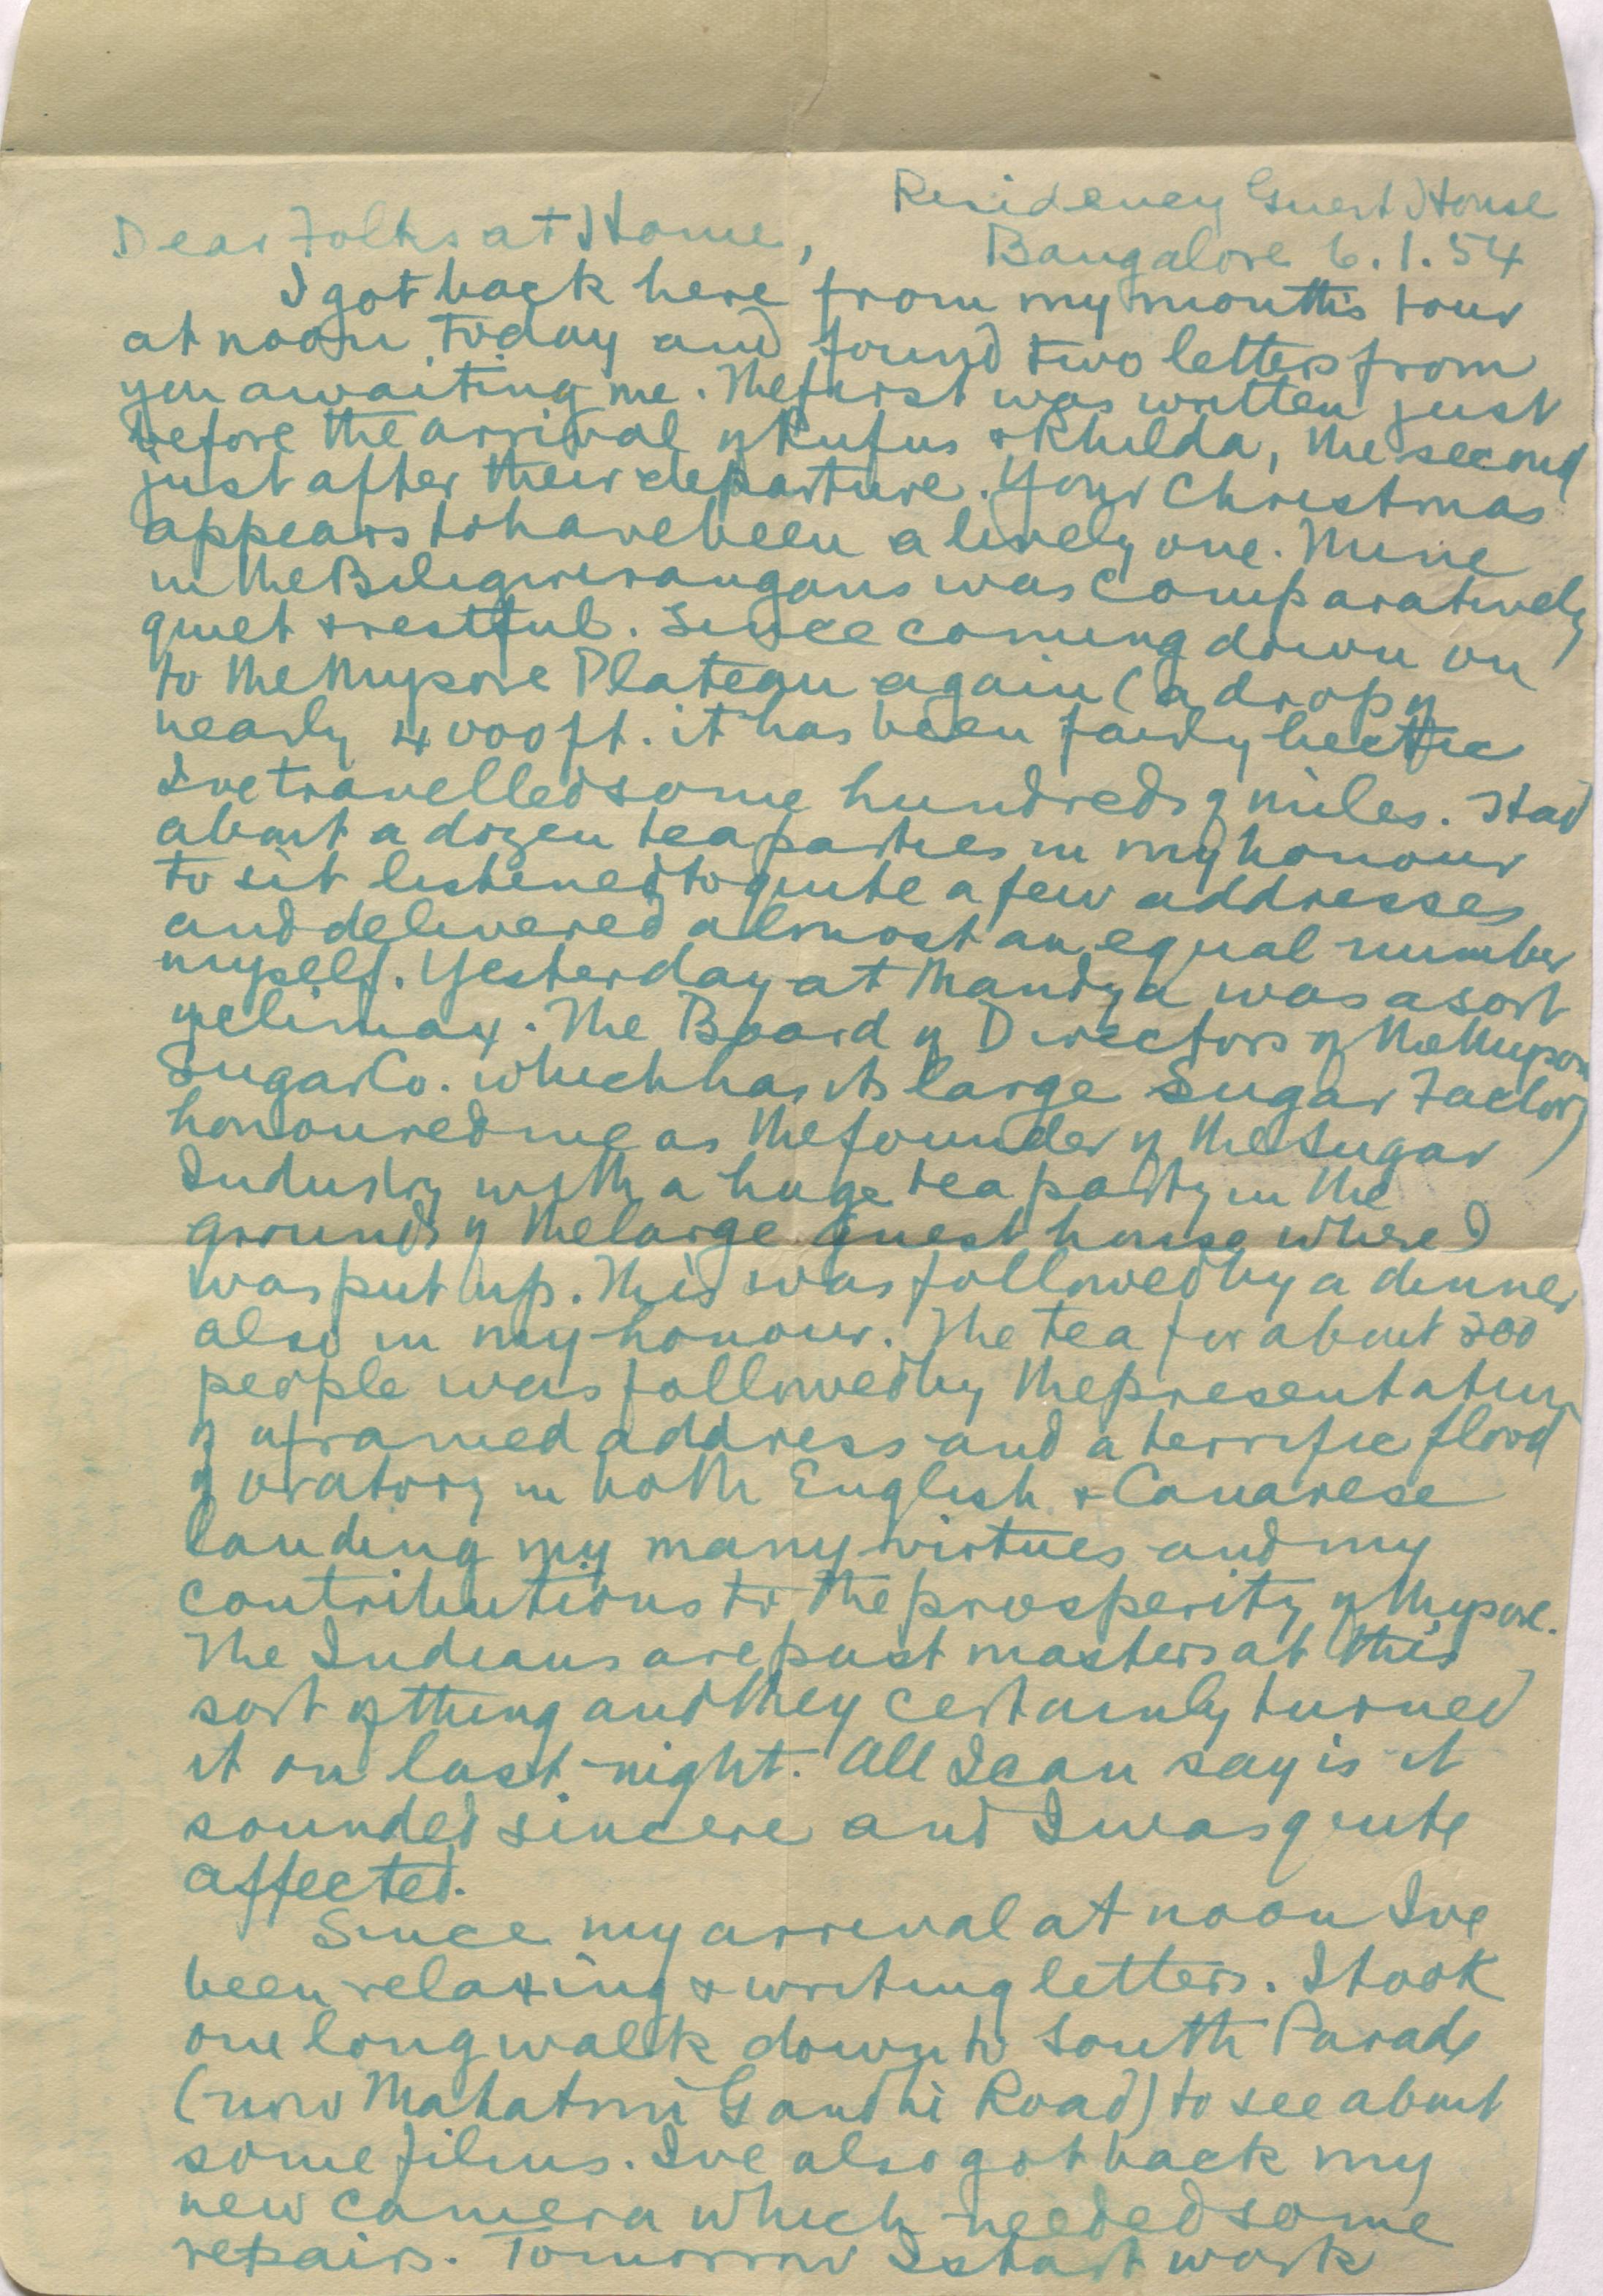 Residency Guest House
Dear Folks at Home,
Bangalore 6.1.54
I got back here from my month's tour
at noon today and found two letters from
you awaiting me. The first was written just
before the arrival of Rufus & Rhilda, the second
just after their departure. Your Christmas
appears to have been a lively one. Mine
in the Biligirirangans was comparatively
quiet & restful. Since coming down on
to the Mysore Plateau again (a drop of
nearly 4000 ft. it has been fairly hectic
I've travelled some hundreds of miles. Had
about a dozen tea parties in my honour
to sit listened to quite a few addresses
and delivered almost an equal number
myself. Yesterday at Mandya was a sort
of climax. The Board of Directors of the Mysore
Sugar Co. which has its large Sugar Factory
honoured me as the founder of the Sugar
Industry with a huge tea party in the
grounds of the large guest house where I
was put up. This was followed by a dinner
also in my honour. The tea for about 200
people was followed by the presentation
of a framed address and a terrific flood
of oratory in both English & Canarese
lauding my many virtues and my
contributions to the prosperity of Mysore.
The Indians are past masters at this
sort of thing and they certainly turned
it on last night. All I can say is it
sounded sincere and I was quite
affected.
Since my arrival at noon I've
been relaxing & writing letters. I took
one long walk down to South Parade
(now Mahatmi Gandhi Road) to see about
some films. I've also got back my
new camera which needed some
repairs. Tomorrow I start work